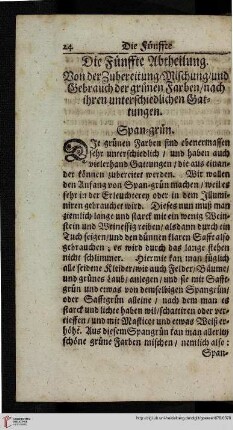 24 Die Fünffte
Die Fünffte Abtheilung.
Von der Zubereitung/Mischung/und
Gebrauch der grünen Farben/nach
ihren unterschiedlichen Gat-
tungen.
Span-grün.
Die grünen Farben sind ebenermassen
sehr unterschiedlich / und haben auch
vielerhand Gattungen / die aus einan-
der können zubereitet werden. Wir wollen
den Anfang von Span-grün machen / weil es
sehr in der Erleuchterey oder in dem Illumi-
niren gebrauchet wird. Dieses nun muß man
ziemlich lange und starck mit ein wenig Wein-
stein und Weinessig reiben / alsdann durch ein
Tuch seigen / und den dünnen klaren Safft also
gebrauchen; es wird durch das lange stehen
nicht schlimmer. Hiermit kan man füglich
alle seidene Kleider / wie auch Felder / Bäume /
und grünes Laub / anlegen / und sie mit Safft-
grün und etwas von demselbigen Spangrün /
oder Safftgrün alleine / nach dem man es
starck und lichte haben wil / schattiren oder ver-
tieffen / und mit Masticot und etwas Weiß er-
höhen. Aus diesem Spangrün kan man allerley
schöne grüne Farben mischen / nemlich also:
Span-